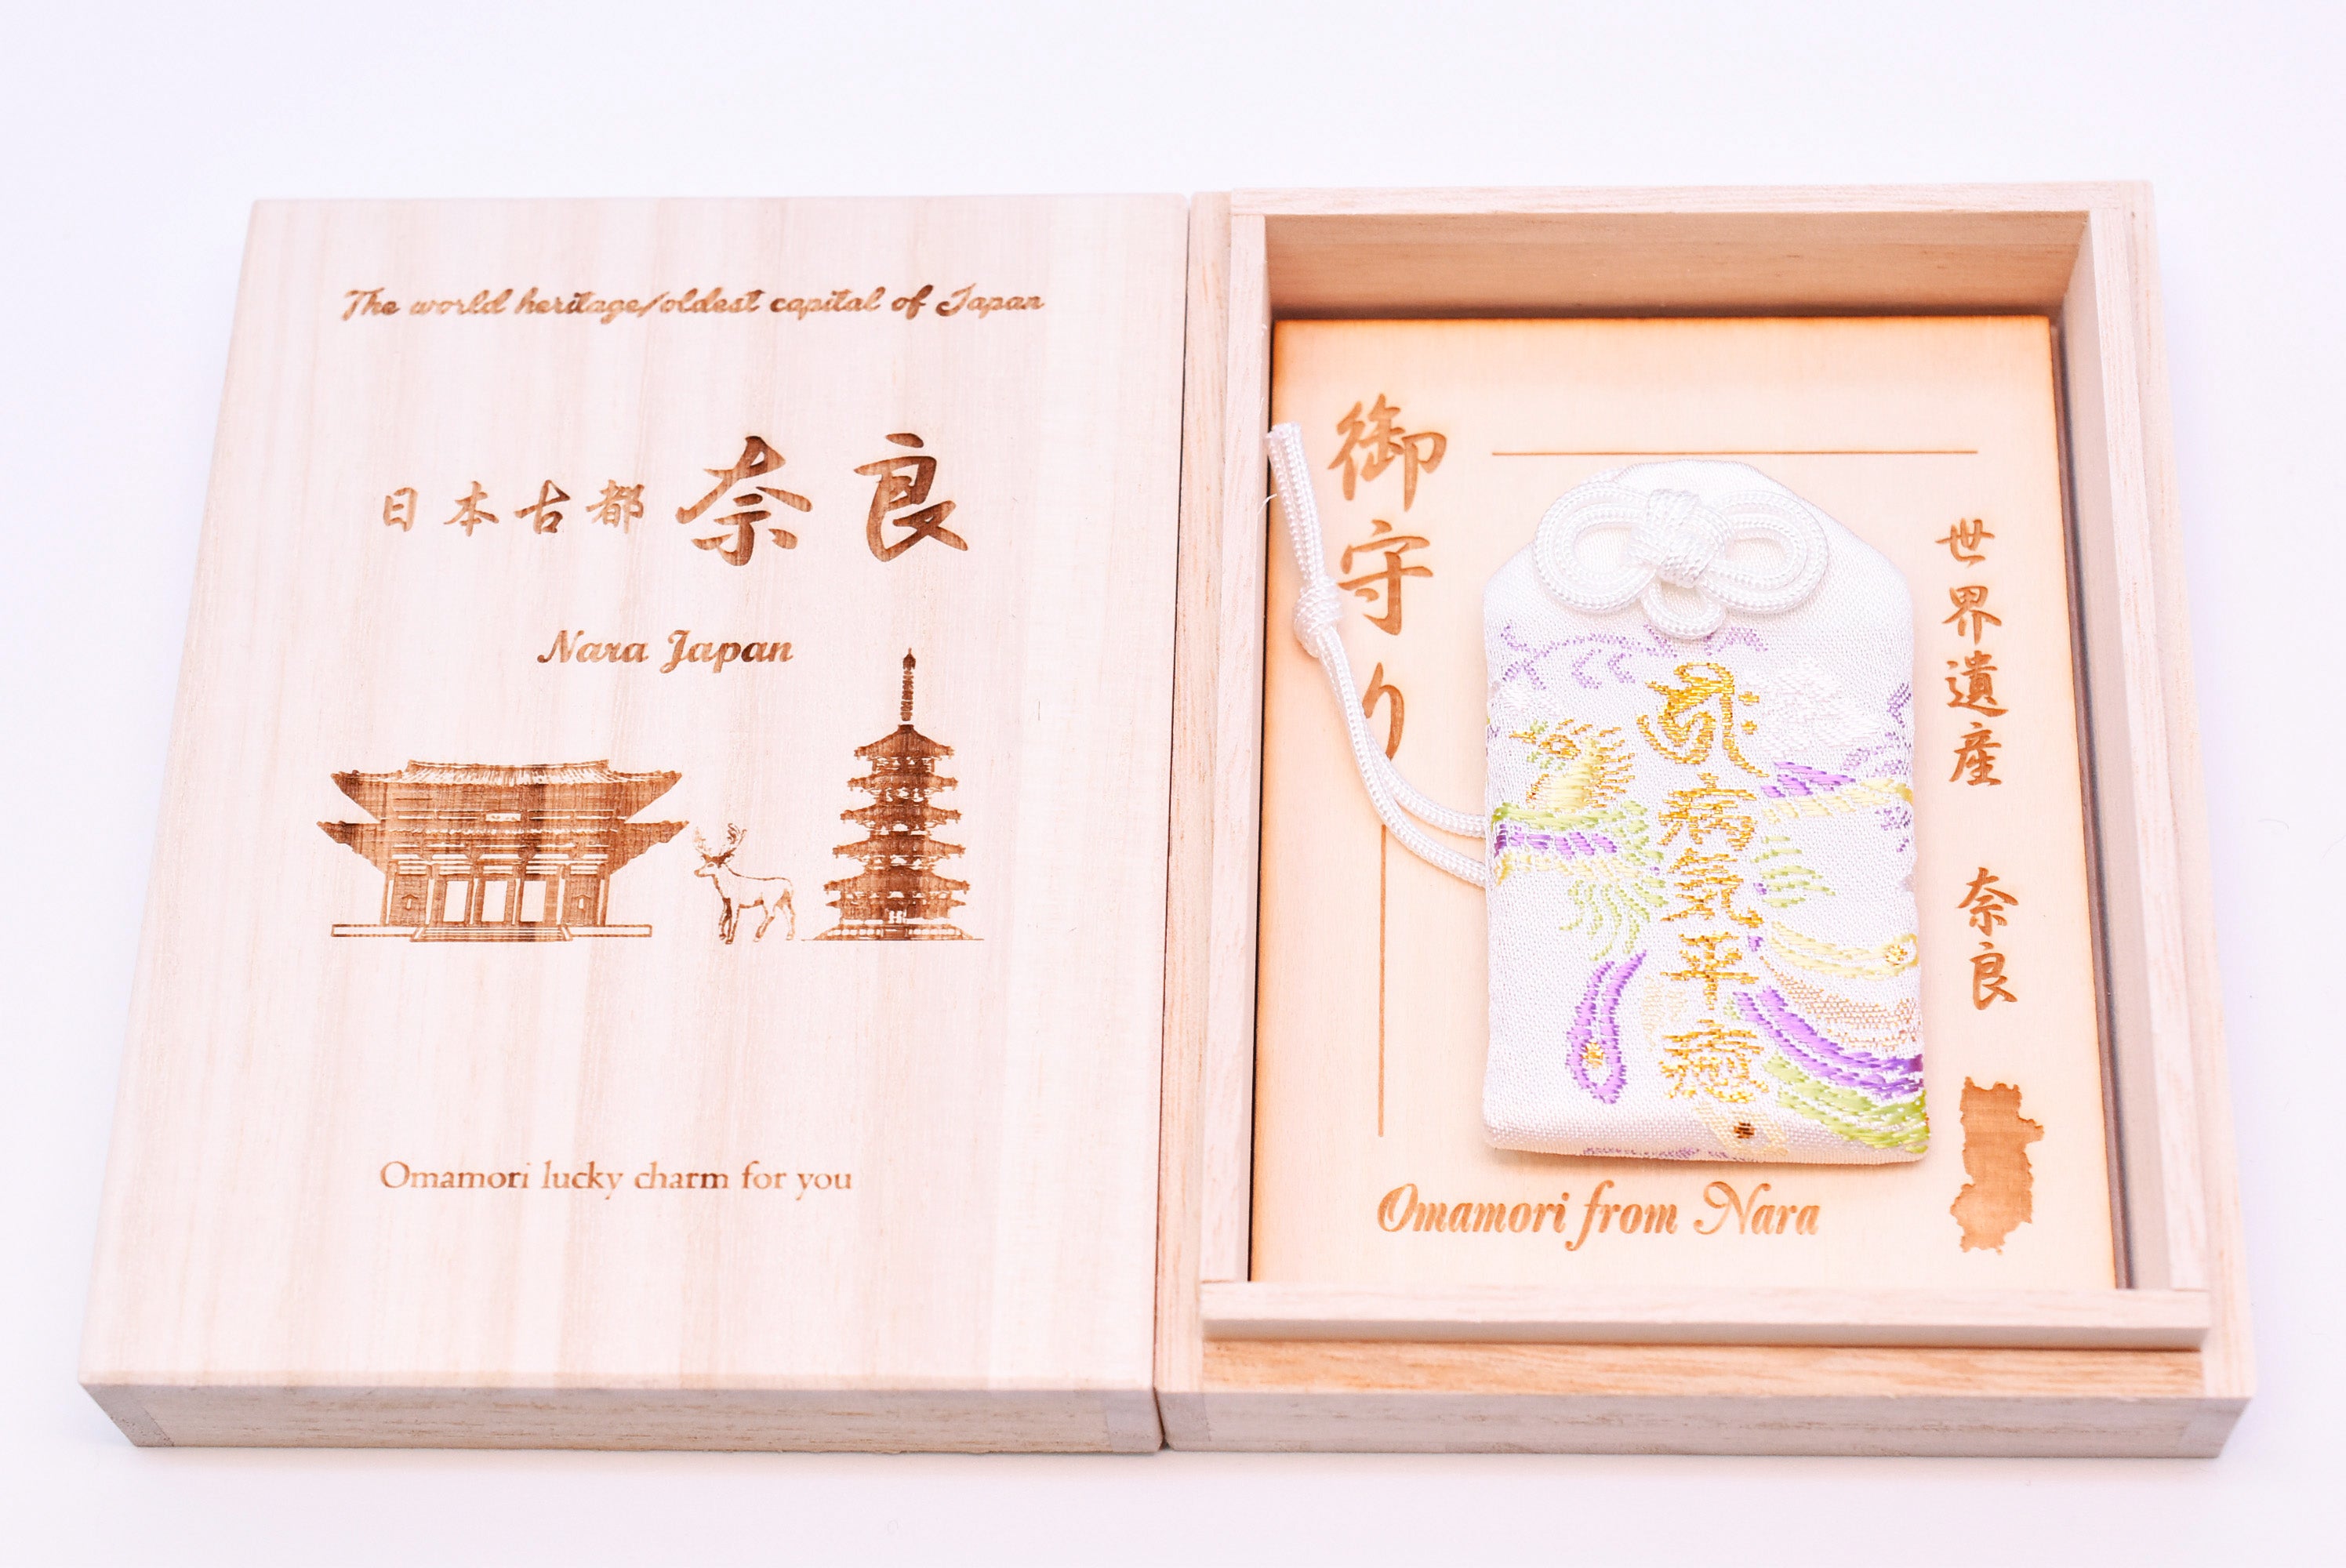 The world heritage/oldest capital of Japan
日本古都 奈良
Nara Japan
Omamori lucky charm for you
御守り
世界遺産 奈良
病氣平癒
Omamori from Nara